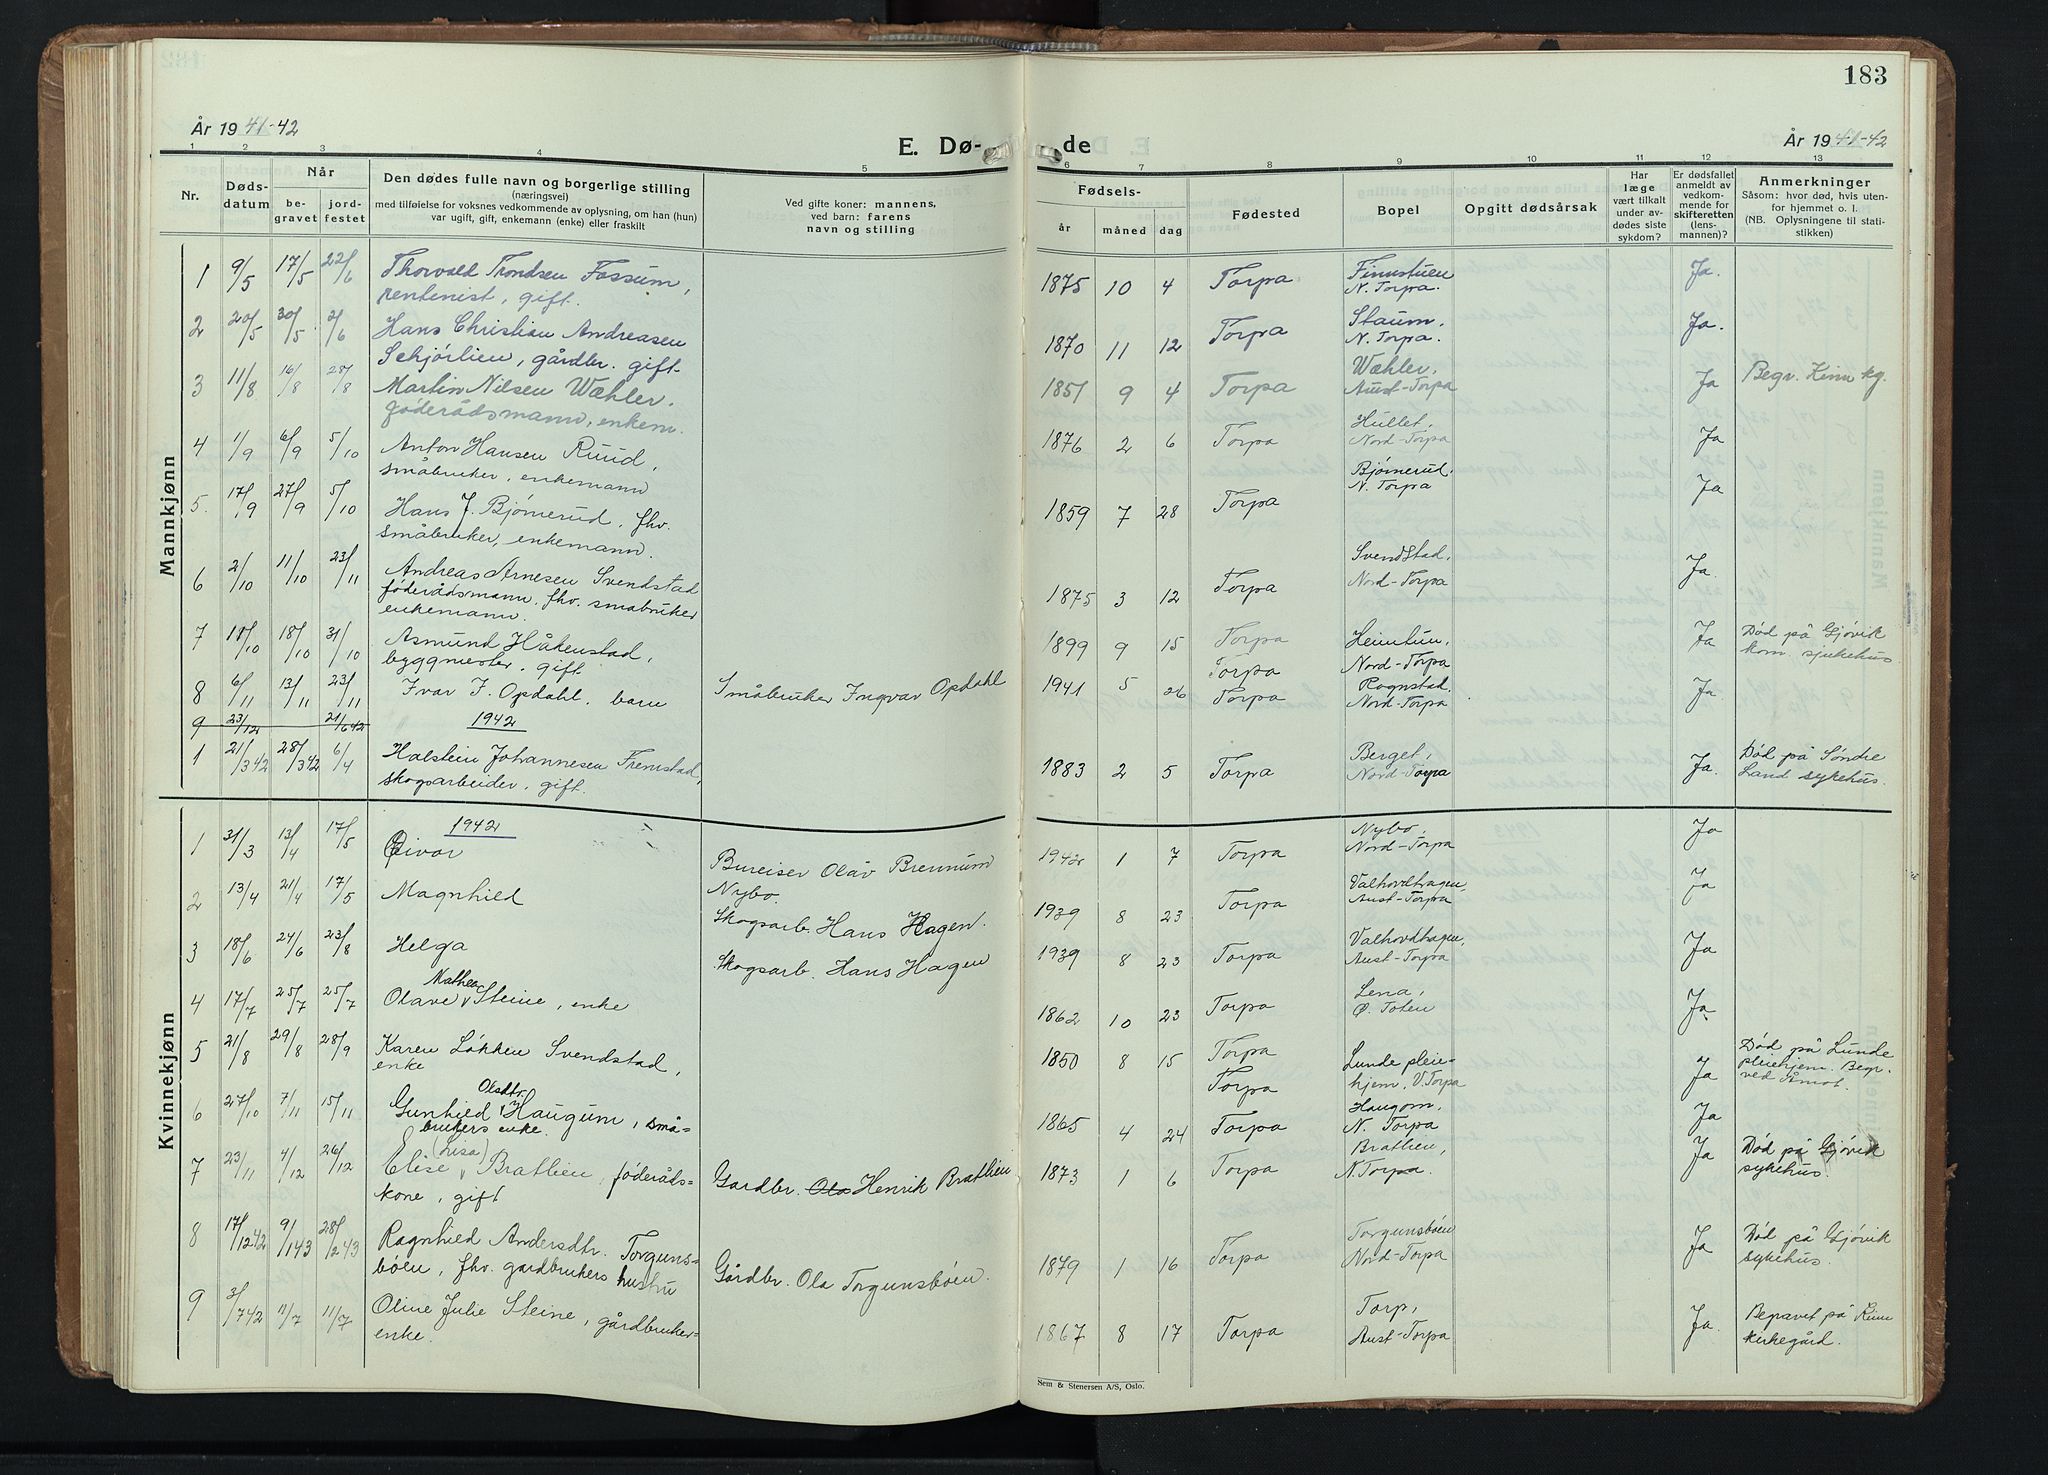 183
År 1941-42
E. Dø-
de
År 1941-42
1 2 3 4 5 6 7 8 9 10 11 12 13
Nr.
Døds-
datum
Når
be-
gravet
jord-
festet
Den dødes fulle navn og borgerlige stilling
(næringsvei)
med tilføielse for voksnes vedkommende av oplysning, om han (hun)
var ugift, gift, enkemann (enke) eller fraskilt
Ved gifte koner: mannens,
ved barn: farens
navn og stilling
Fødsels-
år måned dag
Fødested
Bopel
Opgitt dødsårsak
Har
læge
vært tilkalt
under av-
dødes siste
sykdom?
Er dødsfallet
anmeldt av
vedkom-
mende for
skifteretten
(lens-
mannen)?
Anmerkninger
Såsom: hvor død, hvis uten-
for hjemmet o. l.
(NB. Oplysningene til stati-
stikken)
Mannkjønn
1 9/5 17/5 22/6 Thorvald Trondsen Fossum, 1875 10 4 Torpa Finnstuen Ja.
rentenist, gift. N. Torpa.
2 20/5 30/5 2/6 Hans Christian Andreasen 1870 11 12 Torpa Staum, Ja.
Schjørlien, gårdbr. gift. N. Torpa.
3 11/8 16/8 28/8 Martin Nilsen Wæhler. 1851 9 4 Torpa Wæhler, Ja Begr. Kinn kg.
føderådsmann, enkem. Aust-Torpa
4 1/9 6/9 5/10 Anton Hansen Ruud, 1876 2 6 Torpa Hullet, Ja
småbruker, enkemann Nord-Torpa
5. 17/9 27/9 5/10 Hans J. Bjørnerud, fhv. 1859 7 28 Torpa Bjørnerud, Ja
småbruker, enkemann. N. Torpa
6 2/10 11/10 23/11 Andreas Arnesen Svendstad 1875 3 12 Torpa Svendstad, Ja.
føderådsmann, fhv. småbruker Nord-Torpa
enkemann.
7 18/10 31/10 Asmund Håkenstad, 1899 9 15 Torpa Heimtun, Ja Død på Gjøvik
byggmester, gift Torpa Nord-Torpa kom. sjukehus.
8 6/11 13/11 23/11 Ivar I. Opdahl, barn Småbruker Ingvar Opdahl 1941 5 26 Torpa Rognstad, Ja
Nord-Torpa
9 23/12 21/6 42 1942
1 21/3 42 28/3 42 6/4 Halstein Johannesen Fremstad, 1883 2 5 Torpa Berget, Ja. Død på Søndre
skogsarbeider, gift. Nord-Torpa Land sykehus.
Kvinnekjønn
1942
1 31/3 13/4 17/5 Eivor Bureiser Olav Brennum 1942 1 7 Torpa Nybo, Ja
Nybo. Nord-Torpa
2 13/4 21/4 17/5 Magnhild Skogsarb. Hans Hagen. 1939 8 23 Torpa Valhovdhagen, Ja
Aust-Torpa
3 18/6 24/6 23/8 Helga Skogsarb. Hans Hagen 1939 8 23 Torpa Valhovdhagen, Ja
Aust-Torpa
Mathea
4 17/7 25/7 25/7 Olave Steine, enke 1862 10 23 Torpa Lena, Ja
Ø. Toten
5 21/8 29/8 28/9 Karen Løkken Svendstad, 1850 8 15 Torpa Lunde pleie- Ja Død på Lunde
enke Torpa hjem, V. Torpa pleiehjem. Begr.
ved Åmot.
Olsdtr.
6 27/10 7/11 15/11 Gunhild Haugum, små- 1865 4 24 Torpa Haugom, Ja
brukers enke. N. Torpa
(Lisa)
7 23/11 4/12 26/12 Elise Bratlien, føderåds- Gardbr. Ola Henrik Bratlien 1873 1 6 Torpa Bratlien, Ja Død på Gjøvik
kone, gift N. Torpa. sykehus.
8 17/12 42 9/1 43 28/2 43 Ragnhild Andersdtr. Torguns- Gårdbr. Ola Torgunsbøen. 1879 1 16 Torpa Torgunsbøen Ja Død på Gjøvik
bøen, fhv. gardbrukers hustru Nord-Torpa sykehus.
9 3/7 42 11/7 11/7 Oline Julie Steine, gårdbruker- 1867 8 17 Torpa Torp, Ja. Begravet på Kinn
enke. Aust-Torpa kirkegård.
Sem & Stenersen A/S, Oslo.